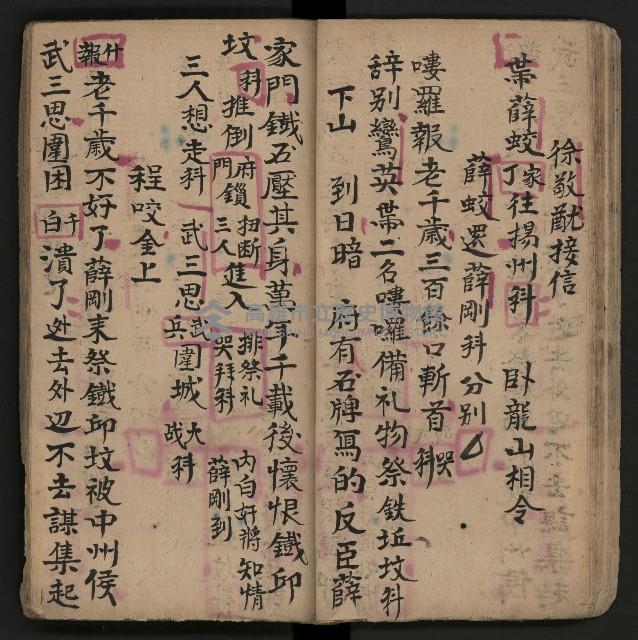 徐敬猷接信
帶薛蛟家丁往揚州科 卧龍山相令
薛蛟選薛剛科分別
嘍羅報老千歲三百餘口斬首哭科
辞別鸞英帶二名嘍囉備礼物祭鉄坵坟科
下山 到日暗 府有石牌寫的反臣薛
家門鐵石壓其身萬年千載後懷恨鐵邱
坟科推倒府門鎖扭断三人進入排祭礼哭拜科內白好將知情薛剛到
三人想走科 武三思武兵圍城大战科
程咬金上
什報老千歲不好了薛剛来祭鐵邱坟被中州侯
武三思圍困千白潰了处去外边不去謀集起
高雄市立歷史博物館